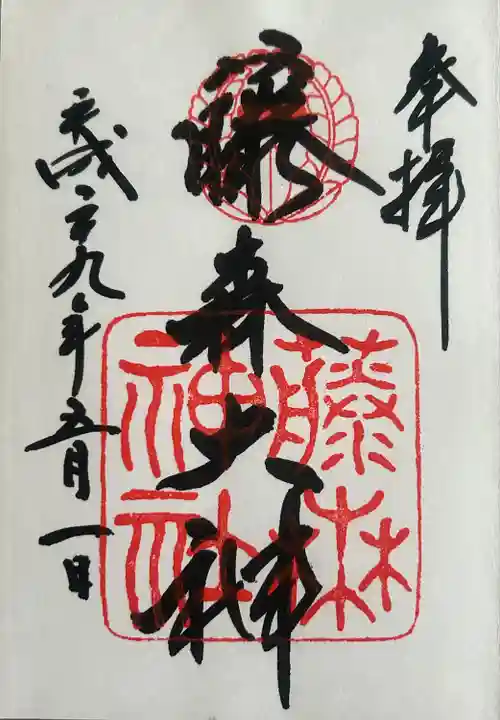 奉拝
藤森大神
藤森
神社
平成二十九年五月一日